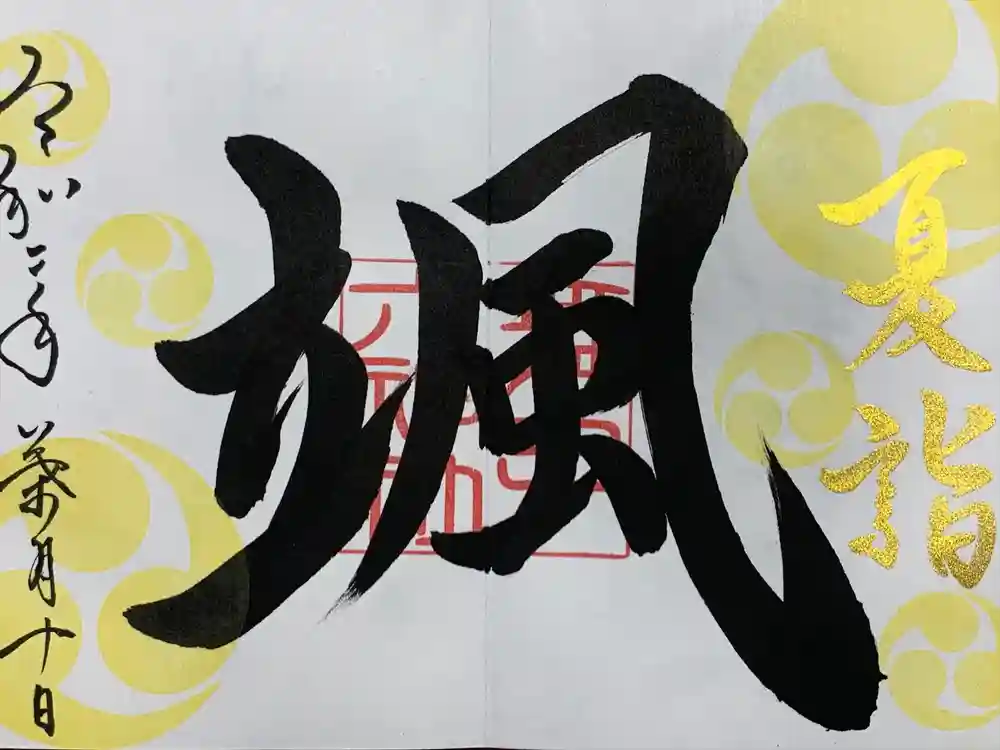 夏詣
颯
令和二年葉月十日